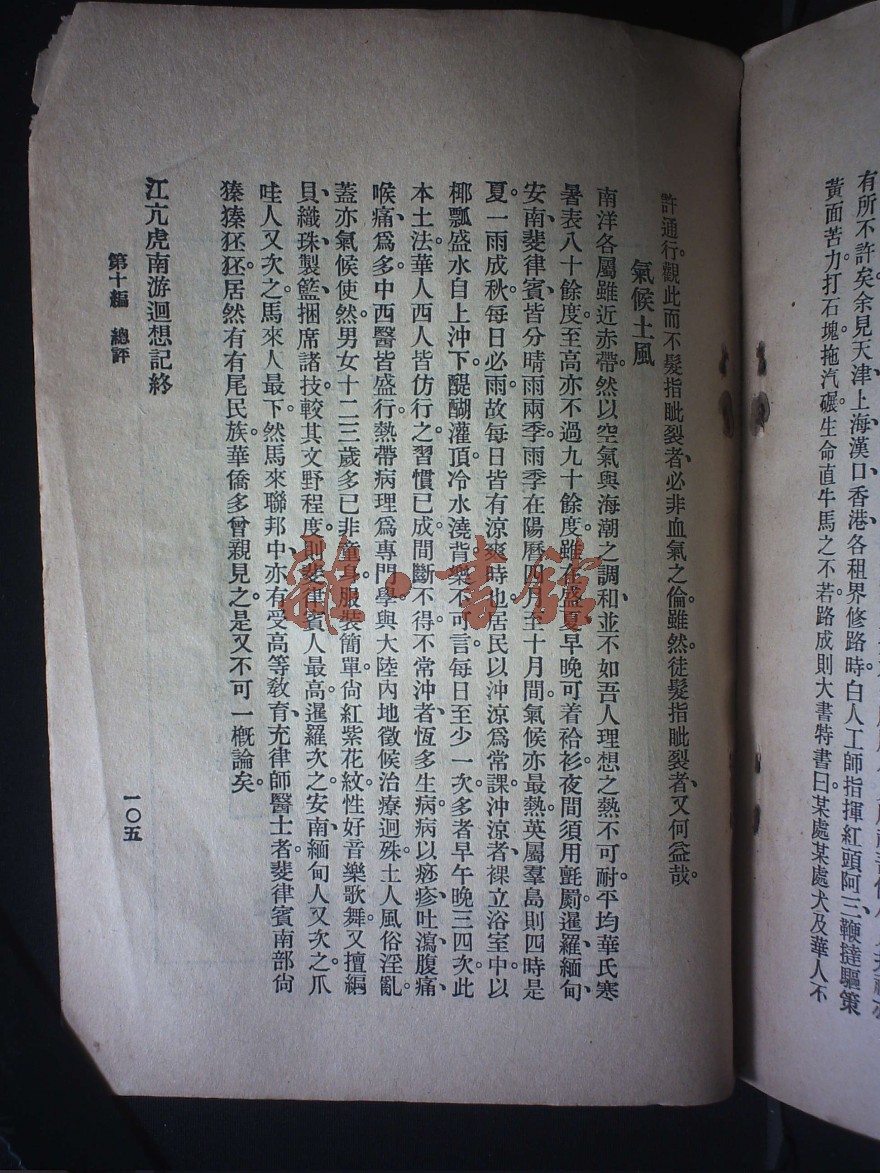 有所不許矣余見天津、上海、漢口、香港、各租界修路時白人工師指揮紅頭阿三鞭撻驅策
黃面苦力打石塊拖汽碾生命直牛馬之不若路成則大書特書曰某處某處犬及華人不
許通行。觀此而不髮指眦裂者、必非血氣之倫。雖然徒髮指眦裂者、又何益哉。
氣候土風
南洋各屬雖近赤帶。然以空氣與海潮之調和、並不如吾人理想之熱不可耐。平均華氏寒
暑表八十餘度。至高亦不過九十餘度。雖在盛夏早晚可着袷衫夜間須用氈罽。暹羅、緬甸、
安南、斐律賓皆分晴雨兩季。雨季在陽曆四月至十月間。氣候亦最熱。英屬羣島則四時是
夏。一雨成秋。每日必雨。故每日皆有涼爽時也。居民以沖涼爲常課。沖涼者、裸立浴室中。以
椰瓢盛水自上沖下。醍醐灌頂冷水澆背、樂不可言。每日至少一次。多者早午晚三四次。此
本土法。華人西人皆仿行之。習慣已成。間斷不得。不常沖者、恆多生病。病以痧疹、吐瀉、腹痛、
喉痛、爲多。中西醫皆盛行。熱帶病理爲專門學。與大陸內地徵候治療迥殊。土人風俗淫亂。
蓋亦氣候使然。男女十二三歲多已非童身。服裝簡單。尙紅紫花紋。性好音樂歌舞。又擅編
貝、織珠、製籃、捆席諸技。較其文野程度、則斐律賓人最高。暹羅次之。安南、緬甸人又次之。爪
哇人又次之。馬來人最下。然馬來聯邦中、亦有受高等教育、充律師醫士者。斐律賓南部尙
獉獉狉狉。居然有有尾民族。華僑多曾親見之。是又不可一概論矣。
江亢虎南游迴想記終
第十編　總評
一〇五
雜·書館